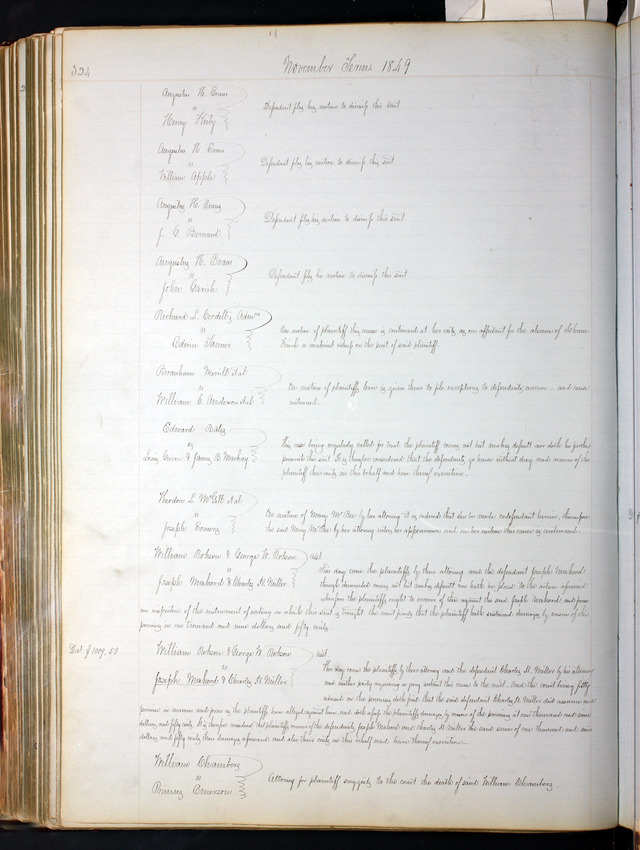 16
324
November Term 1849
Augustus H. Evans
vs
Henry Keily
Defendant files his motion to dismiss this suit
Augustus H. Evans
vs
William Apple
Defendant files his motion to dismiss this suit
Augustus H. Evans
vs
J. C. Bernard
Defendant files his motion to dismiss this suit
Augustus H. Evans
vs
John
Defendant files his motion to dismiss this suit
Richard L. Cordell's Admr
vs
Edwin Tanner
On motion of plaintiff this cause is continued at his costs as on affidavit for the absence of
a material witness on the part of said plaintiff.
Branham Merrill et al
vs
William C. Anderson et al
On motion of plaintiffs leave is given them to file exceptions to defendants answer and cause
continued.
Edward Bates
vs
Louis & James B. Mackay
This case being regularly called for trial the plaintiff comes not but makes default nor doth he further
prosecute this suit. It is therefore considered that the defendants go hence without day and recover of the
plaintiff their costs in this behalf and have thereof execution.
Theodore L. McGill et al
vs
Joseph Conway
On motion of Mary McRee by her attorney it is ordered that she be made codefendant herein, therefore
the said Mary McRee by her attorney enters her appearance and on her motion this cause is continued.
William Robson & George W. Robson
vs
Joseph Mahood & Charles H. Miller
This day come the plaintiffs by their attorney and the defendent Joseph Mahood
though demanded comes not but makes default nor hath he plead to the action aforesaid
wherefore the plaintiffs ought to recover of the against the said Joseph Mahood, and from
an inspection of the instrument of writing on which this suit is brought the court finds that the plaintiffs hath sustained damages by reason of the
premises in one thousand and nine dollars and fifty cents.
Dist $1009.50
William Robson & George W. Robson
vs
Joseph Mahood & Charles H. Miller
This day come the plaintiffs by their attorney and the defendent Charles H. Miller by his attorney
and neither party requiring a jury submit this cause to the court. And the court being fully
advised in the premises doth find that the said defendant Charles H. Miller did assume and
promise in manner and form as the plaintiffs have alleged against him, and doth assess the plaintiffs damages by reason of the premises at one thousand and nine
dollars and fifty cents. It is therefore considered that plaintiffs recover of the defendants Joseph Mahood and Charles H. Miller the said sum of one thousand and nine
dollars and fifty cents their damages aforesaid and also their costs in this behalf and have thereof execution.
William Chambers
vs
Emerson
Attorney for plaintiff suggests to the court the death of said William Chambers.